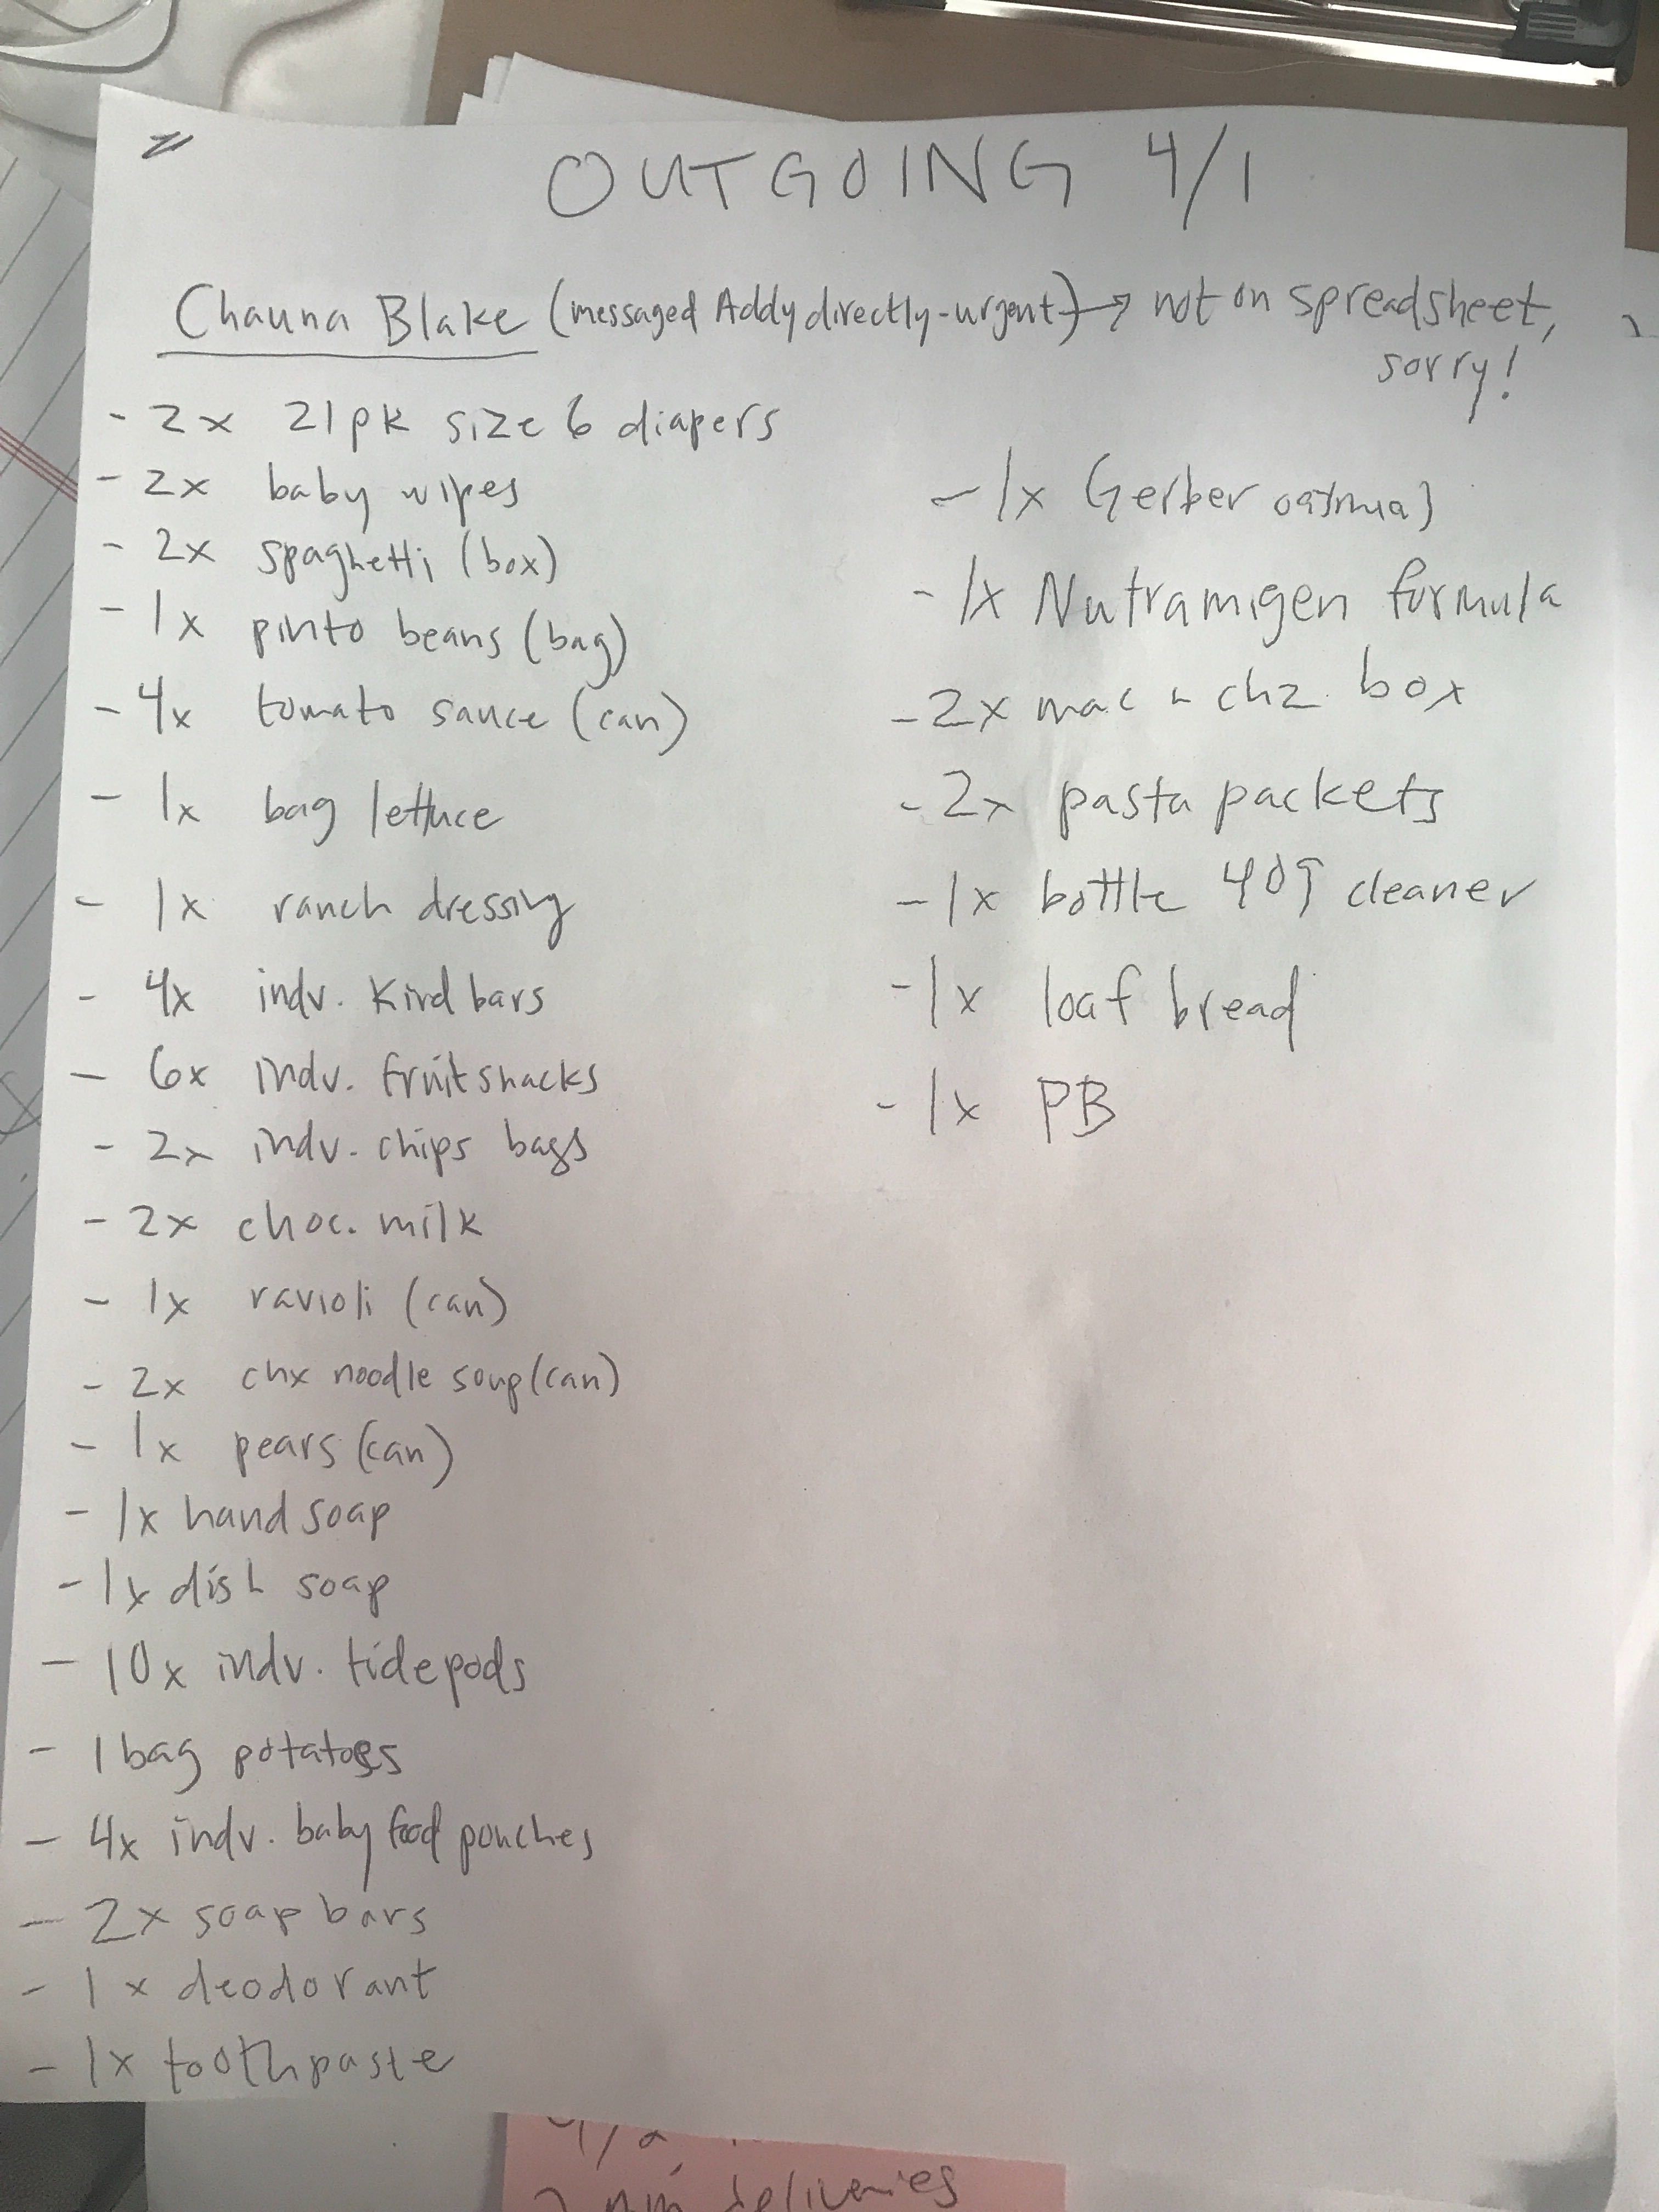 OUTGOING 4/1
Chauna Blake (messaged Addy directly-urgent) → not on spreadsheet,
sorry!
- 2x 21pk size 6 diapers
- 2x baby wipes
- 2x spaghetti (box)
- 1x pinto beans (bag)
- 4x tomato sauce (can)
- 1x bag lettuce
- 1x ranch dressing
- 4x indv. Kind bars
- 6x indv. fruit snacks
- 2x indv. chips bags
- 2x choc. milk
- 1x ravioli (can)
- 2x chx noodle soup (can)
- 1x pears (can)
- 1x hand soap
- 1x dish soap
- 10x indv. tide pods
- 1 bag potatoes
- 4x indv. baby food pouches
- 2x soap bars
- 1x deodorant
- 1x toothpaste
- 1x Gerber oatmeal
- 1x Nutramigen formula
- 2x mac n chz box
- 2x pasta packets
- 1x bottle 409 cleaner
- 1x loaf bread
- 1x PB
deliveries